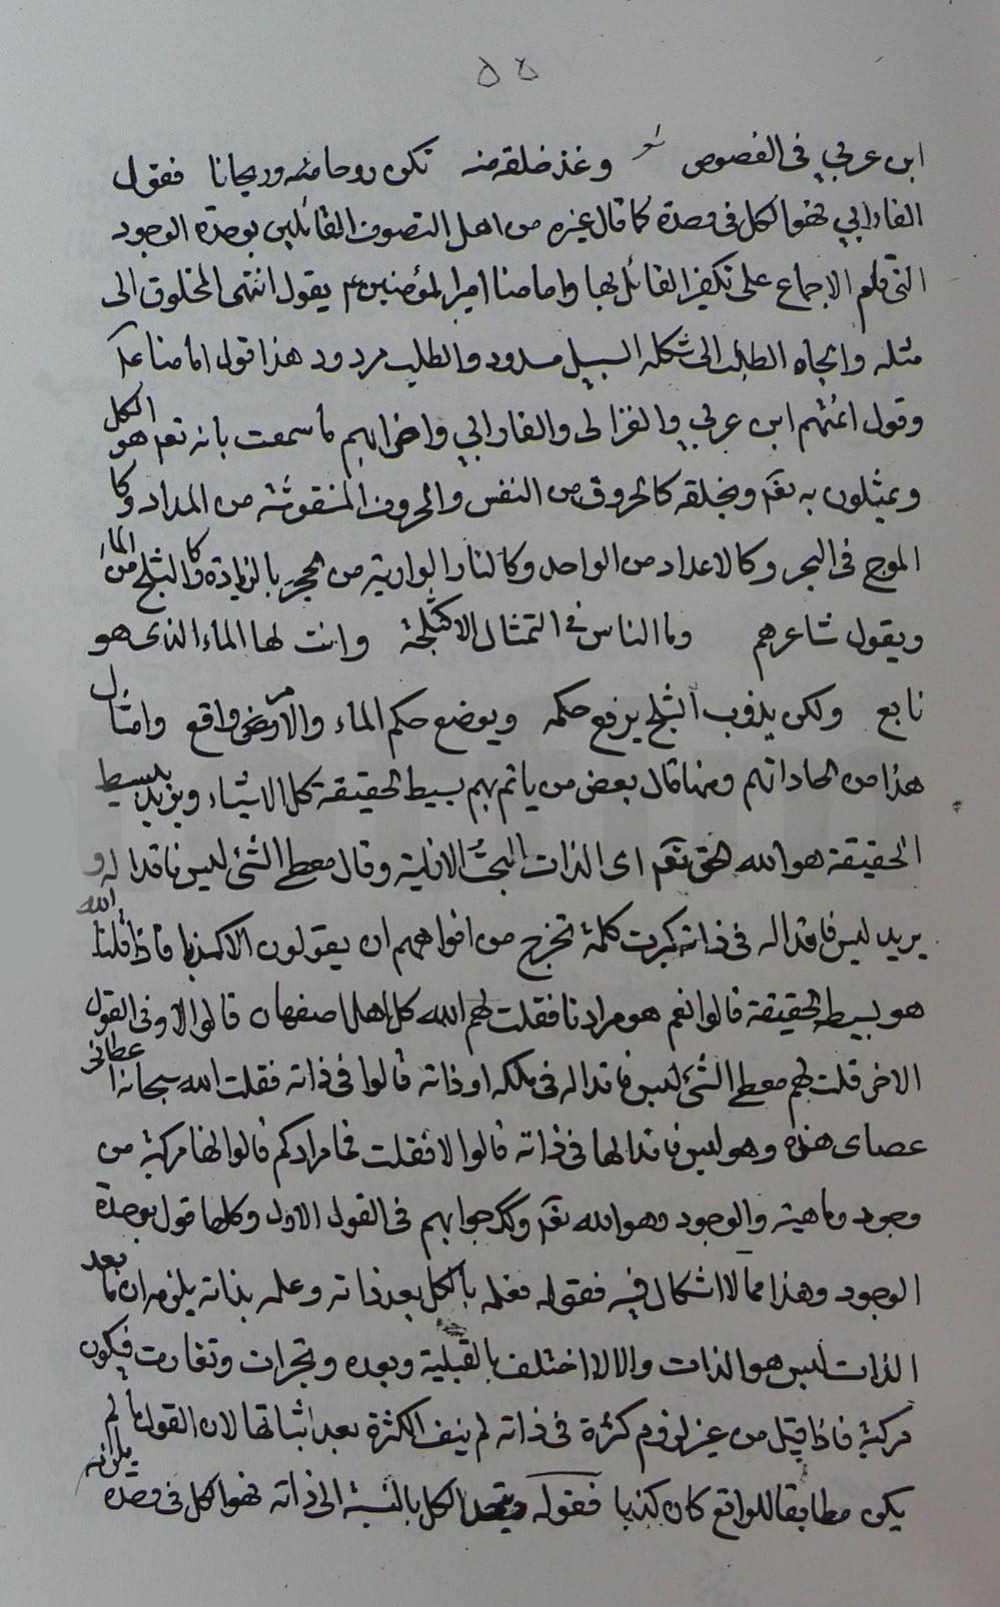 ٥٥
ابن عربي في الفصوص شعر وغذ خلقه منه تكن روحا منه وريحانا فقول
الفارابي فهو الكل في وحدة كما قال غيره من اهل التصوف القائلين بوحدة الوجود
التي قام الاجماع على تكفير القائل بها وامامنا امير المؤمنين ع يقول انتهى المخلوق الى
مثله والجاه الطلب الى شكله السبيل مسدود والطلب مردود هذا قول امامنا ع
وقول ائمتهم ابن عربي والغزالي والفارابي واضرابهم ما سمعت بانه تعم هو الكل
ويمثلون به تعم وبخلقه كالحروف من النفس والحروف المنقوشة من المداد وكا
الموج في البحر وكالاعداد من الواحد وكالنار الوارية من الحجر بالزيادة وكالثلج من الماء
ويقول شاعرهم وما الناس في التمثال الا كثلجة وانت لها الماء الذي هو
نابع ولكن يذوب الثلج يرفع حكمه ويوضع حكم الماء والامر واقع وامثال
هذا من الحاداتهم ومنها قال بعض من ياتم بهم بسيط الحقيقة كل الاشياء ويريد ببسيط
الحقيقة هو الله الحق تعم اي الذات البحت الازلية وقال معطي الشئ ليس فاقدا له و
يريد ليس فاقدا له في ذاته كبرت كلمة تخرج من افواههم ان يقولون الا كذبا فاذا قلنا الله
هو بسيط الحقيقة قالوا نعم هو مرادنا فقلت لهم الله كل اهل اصفهان قالوا لا وفي القول
الاخر قلت لهم معطي الشئ ليس فاقدا له في ملكه او ذاته قالوا في ذاته فقلت الله سبحانه اعطاني
عصاي هذه وهو ليس فاقدا لها في ذاته قالوا لا فقلت فما مرادكم قالوا انها مركبة من
وجود وماهية والوجود هو الله تعم وكذا جوابهم في القول الاول وكلها قول بوحدة
الوجود وهذا مما لا اشكال فيه فقوله فعلمه بالكل بعد ذاته وعلمه بذاته يلزمه ان ما بعد
الذات ليس هو الذات والا لا اختلف بالقبلية وبعده وتجزات وتغايرت فيكون
مركبة فاذا قيل من غير لزوم كثرة في ذاته لم ينف الكثرة بعد اثباتها لان القول ما لم
يكن مطابقا للواقع كان كذبا فقوله ويتحد الكل بالنسبة الى ذاته فهو الكل في وحدة يلزمه